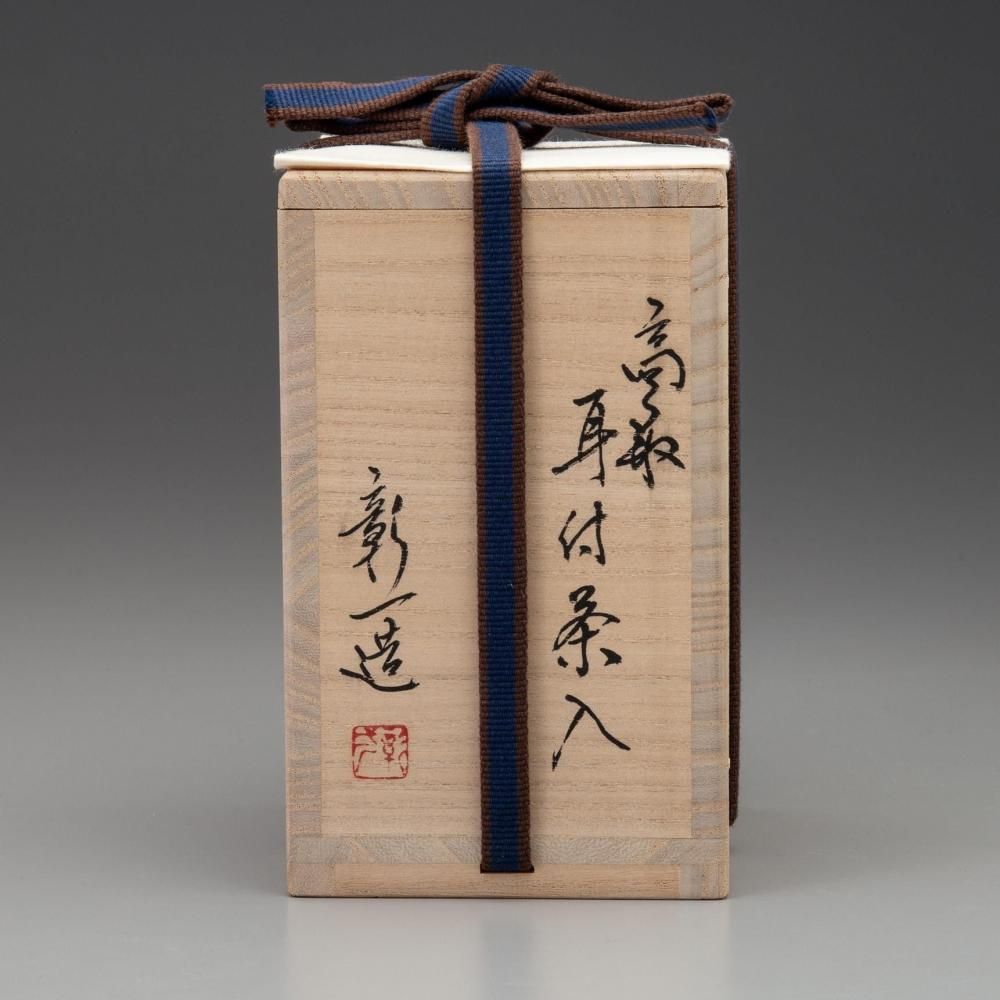 高取
耳付茶入
彰一造